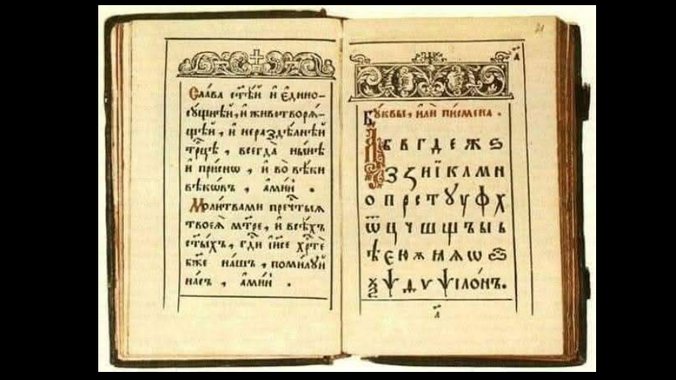 Сла́ва ст҃ѣ́й и҆ є҆диносꙋ́щнѣй, и҆ животворѧ́щей, и҆ нераздѣ́лнѣй
трⷪ҇цѣ, всегда̀ нн҃ѣ
и҆ при́снѡ, и҆ во вѣ́ки
вѣкѡ́въ, а҆ми́нь.
Моли́твами пречⷭ҇тыѧ
твоеѧ̀ мт҃ре, и҆ всѣ́хъ
ст҃ы́хъ, гдⷭ҇и і҆и҃се хрⷭ҇тѐ
бж҃е на́шъ, поми́лꙋй
на́съ, а҆ми́нь.
Бꙋ́квы, и҆лѝ писмена̀.
А Б В Г Д Е Ж Ѕ
З И Ї К Л М Н
О П Р С Т У Ꙋ Ф Х
Ѿ Ц Ч Ш Щ Ъ Ы Ь
Ѣ Є Ю Ѫ Ѧ Ѡ
Ѯ Ѱ Ѳ Ѵ ѱі́лонъ.